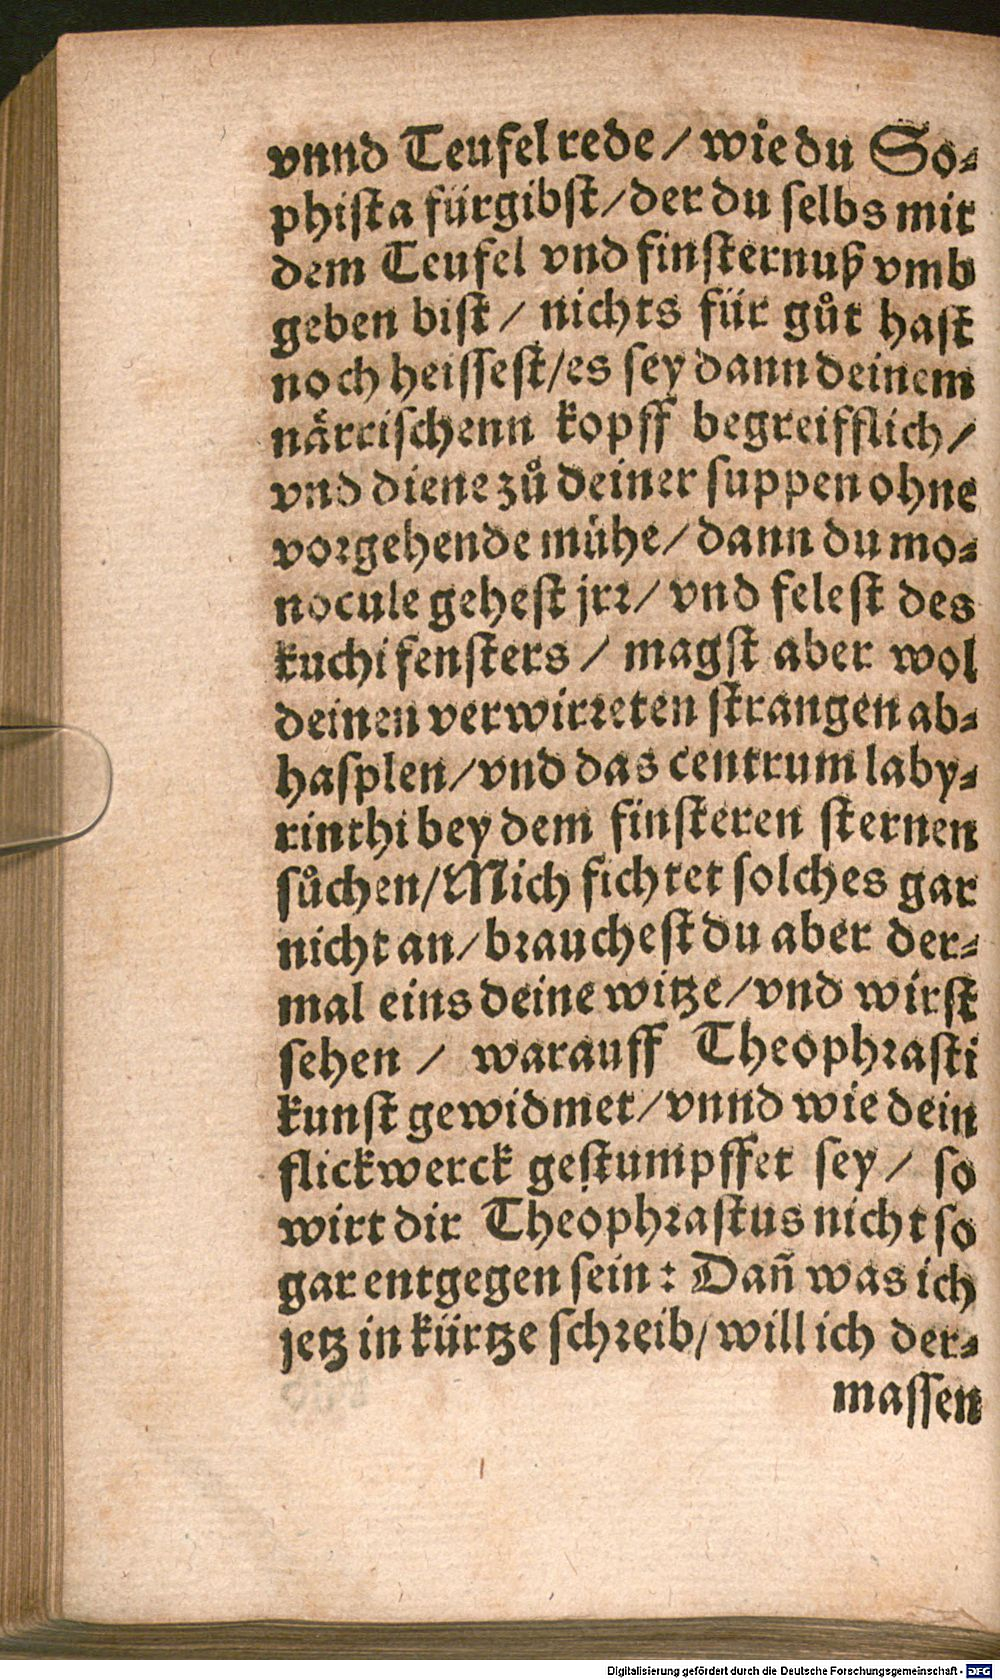 vnnd Teufel rede / wie du So⸗
phista fürgibst / der du selbs mit
dem Teufel vnd finsternuß vmb
geben bist / nichts für gůt hast
noch heissest / es sey dann deinem
närrischenn kopff begreifflich /
vnd diene zů deiner suppen ohne
vorgehende mühe / dann du mo⸗
nocule gehest jrr / vnd felest des
kuchifensters / magst aber wol
deinen verwirreten strangen ab⸗
hasplen / vnd das centrum laby⸗
rinthi bey dem finsteren sternen
sůchen / Mich fichtet solches gar
nicht an / brauchest du aber der⸗
mal eins deine witze / vnd wirst
sehen / warauff Theophrasti
kunst gewidmet / vnnd wie dein
flickwerck gestumpffet sey / so
wirt dir Theophrastus nicht so
gar entgegen sein : Dañ was ich
jetz in kürtze schreib / will ich der⸗
massen
Digitalisierung gefördert durch die Deutsche Forschungsgemeinschaft - DFG